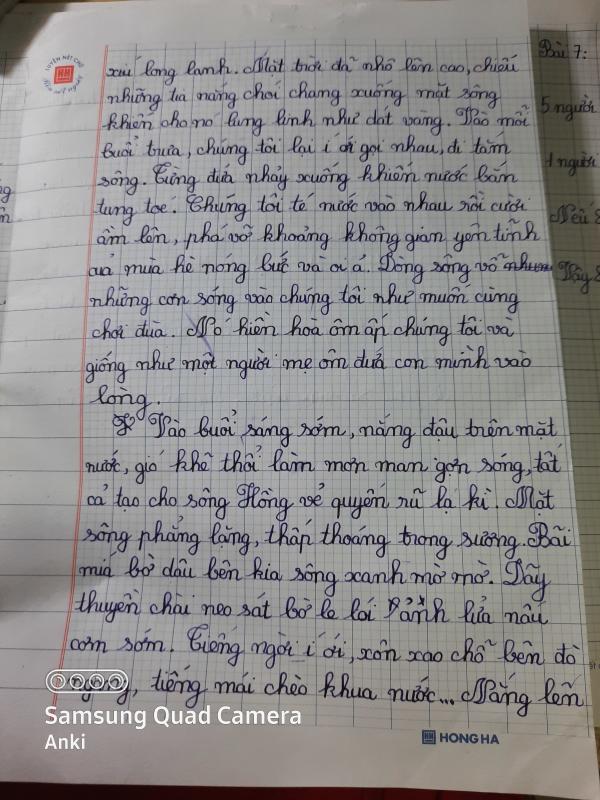 LUYỆN NÉT CHỮ
HH
xíu long lanh. Mặt trời đã nhô lên cao, chiếu
những tia nắng chói chang xuống mặt sông
khiến cho nó lung linh như dát vàng. Vào mỗi
buổi trưa, chúng tôi lại í ới gọi nhau, đi tắm
sông. Từng đứa nhảy xuống khiến nước bắn
tung toé. Chúng tôi té nước vào nhau rồi cười
ầm lên, phá vỡ khoảng không gian yên tĩnh
của mùa hè nóng bức và oi ả. Dòng sông vỗ
những cơn sóng vào chúng tôi như muốn cùng
chơi đùa. Nó hiền hoà ôm ấp chúng tôi và
giống như một người mẹ ôm đứa con mình vào
lòng.
Vào buổi sáng sớm, nắng đậu trên mặt
nước, gió khẽ thổi làm mơn man gợn sóng, tất
cả tạo cho sông Hồng vẻ quyến rũ lạ kì. Mặt
sông phẳng lặng, thấp thoáng trong sương. Bãi
mía bờ dâu bên kia sông xanh mờ mờ. Dãy
thuyền chài neo sát bờ le lói ánh lửa nấu
cơm sớm. Tiếng người í ới, xôn xao chỗ bến đò
ngang, tiếng mái chèo khua nước... Nắng lên
Bài 7:
5 người
1 người
Nếu
Vậy
Samsung Quad Camera
Anki
HH HONG HA